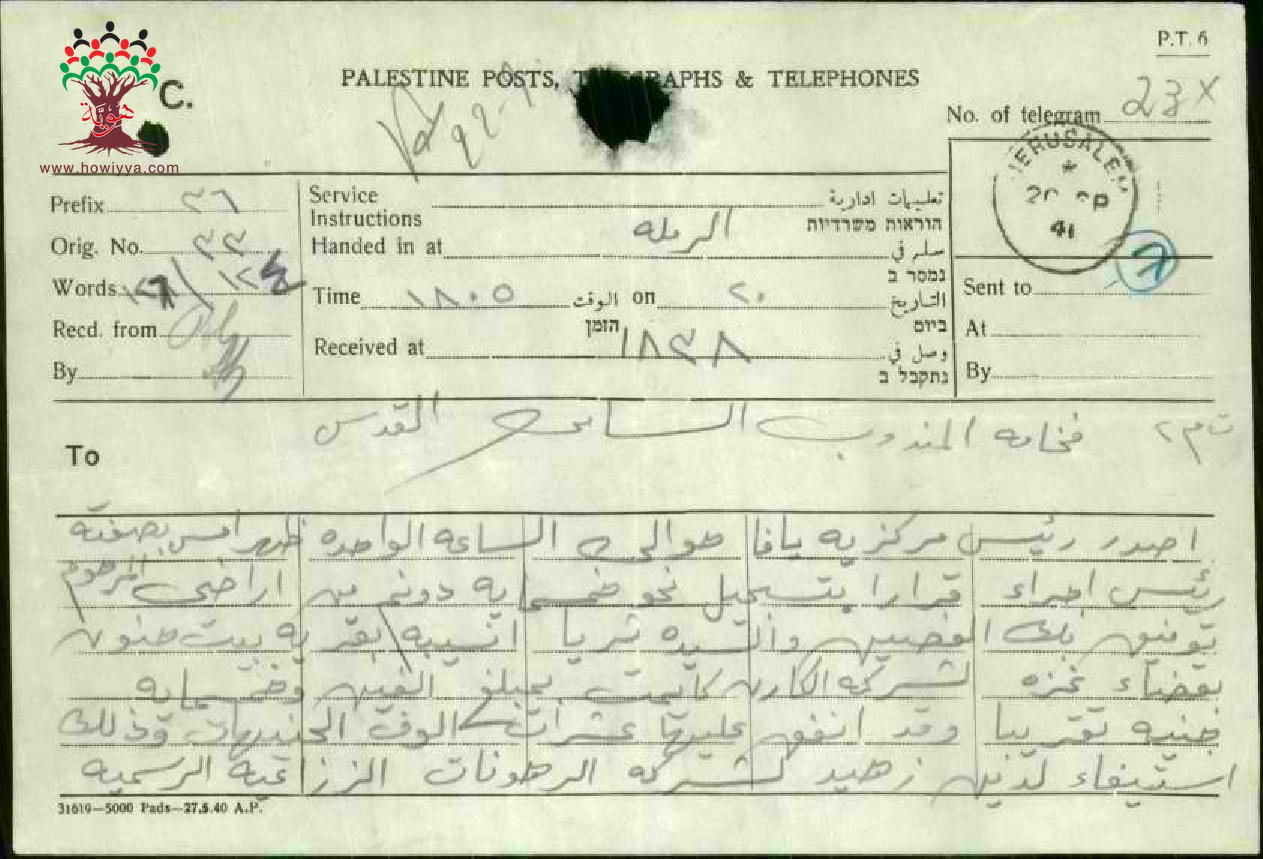 هوية
www.howiyya.com
C.
P.T. 6
PALESTINE POSTS, APHS & TELEPHONES
No. of telegram 23 X
JERUSALEM
41
Prefix ٣٦
Orig. No. ٣٣
Words
Recd. from
By
Service Instructions تعليمات ادارية
הוראות משרדיות
Handed in at الرمله سلم في
נמסר ב
Time ١٨٠٥ الوقت on ٢٠ التاريخ
הזמן ביום
Received at ١٨٣٨ وصل في
נתקבל ב
Sent to
At
By
To
فخامه المندوب السامي القدس
اصدر رئيس مركزيه يافا حوالي الساعه الواحده ظهر امس بصفته
رئيس اجراء قرارا بتسجيل نحو خمسمايه دونم من اراضي المرحوم
توفيق بك الغصين والسيده ثريا بقريه بيت حنون
بقضاء غزه لشركه الكارن كايمت بمبلغ الفين وخمسمايه
جنيه تقريبا وقد انفق عليها عشرات الوف الجنيهات وذلك
استيفاء لدين زهيد لشركه الرهونات الزراعيه الرسميه
31619—5000 Pads—27.5.40 A.P.